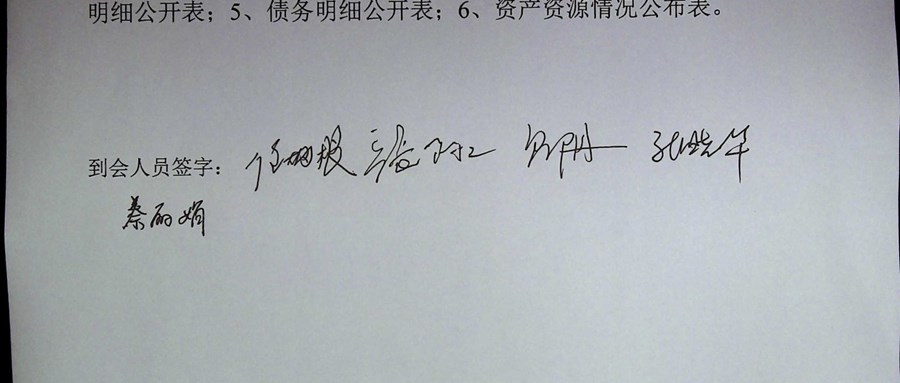 明细公开表；5、债务明细公开表；6、资产资源情况公布表。
到会人员签字： 张晓华
秦丽娟